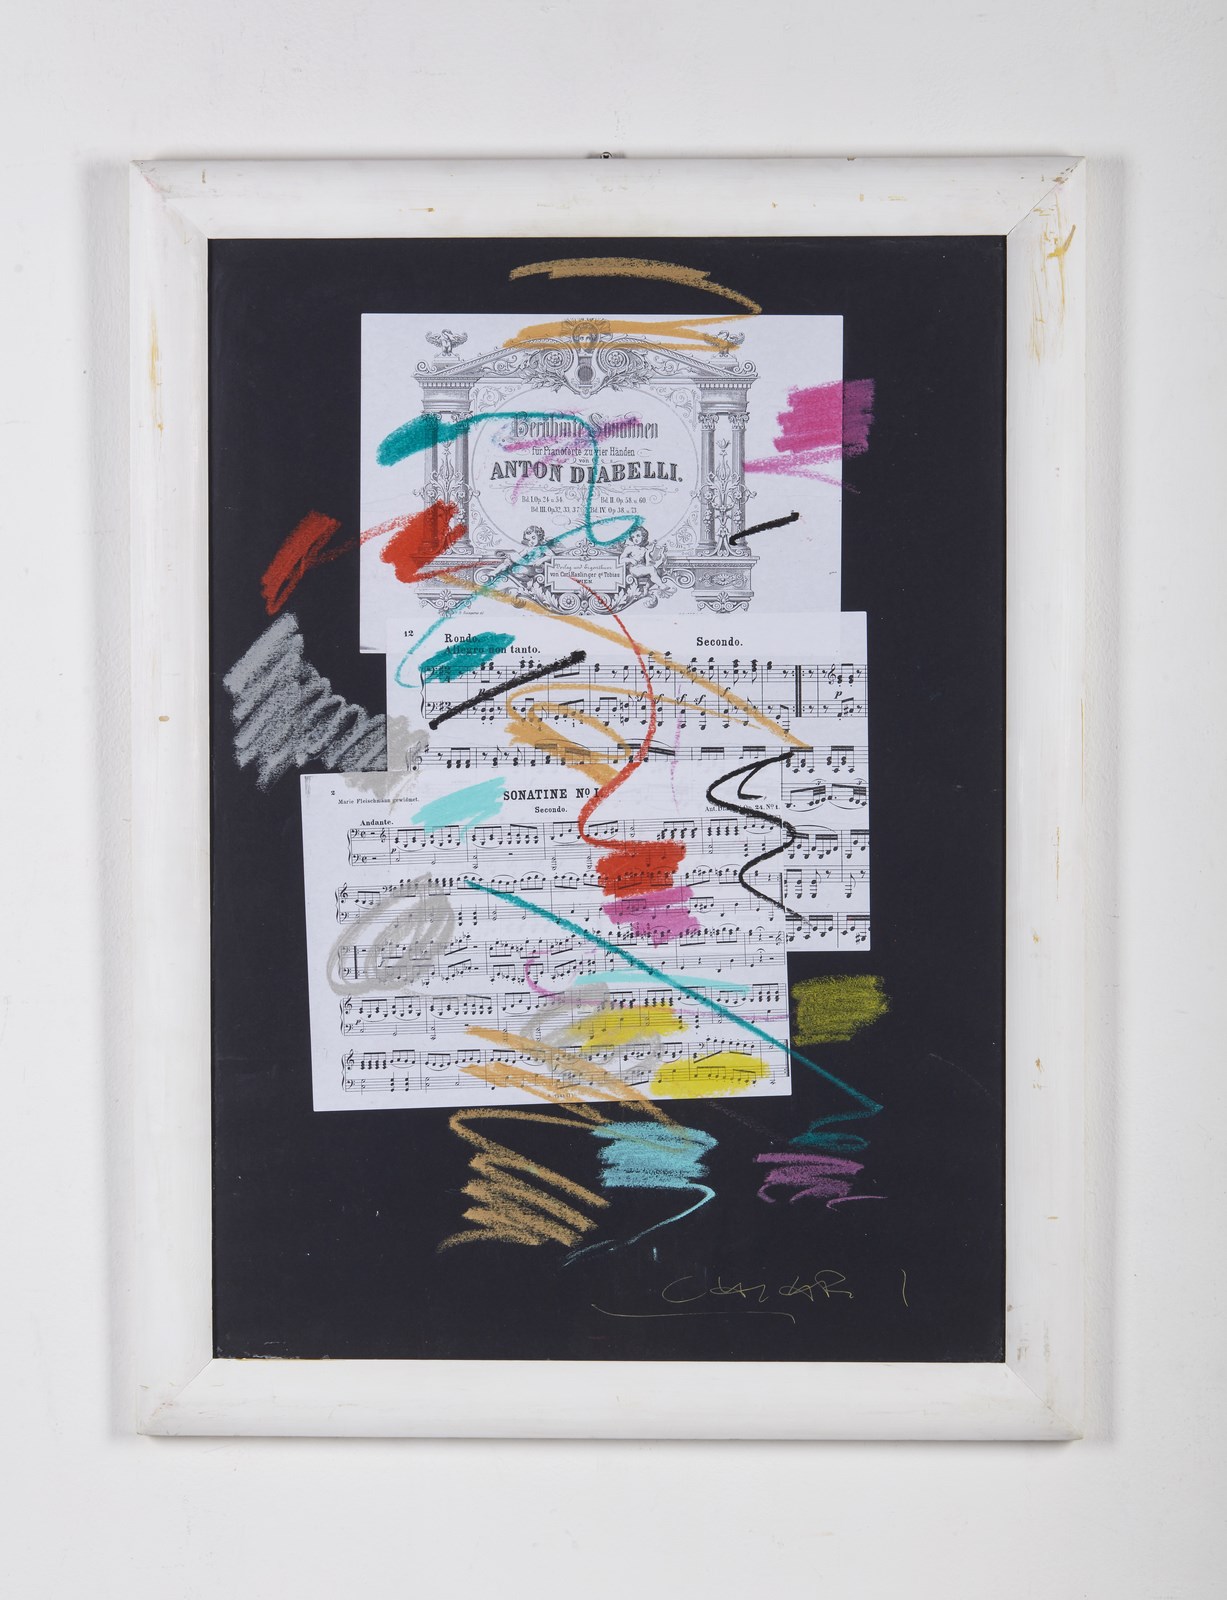 Berühmte Sonatinen
für Pianoforte zu vier Händen
von
ANTON DIABELLI.
Bd. I. Op. 24 u. 54. Bd. II. Op. 58 u. 60.
Bd. III. Op. 32, 33, 37. Bd. IV. Op. 38 u. 73.
Verlag und Eigenthum
von Carl Haslinger qm Tobias
WIEN
12
Rondo.
Allegro non tanto.
Secondo.
p
sf sf sf
p
2
Marie Fleischmann gewidmet.
SONATINE No I.
Secondo.
Op. 24. No 1.
Andante.
p
p